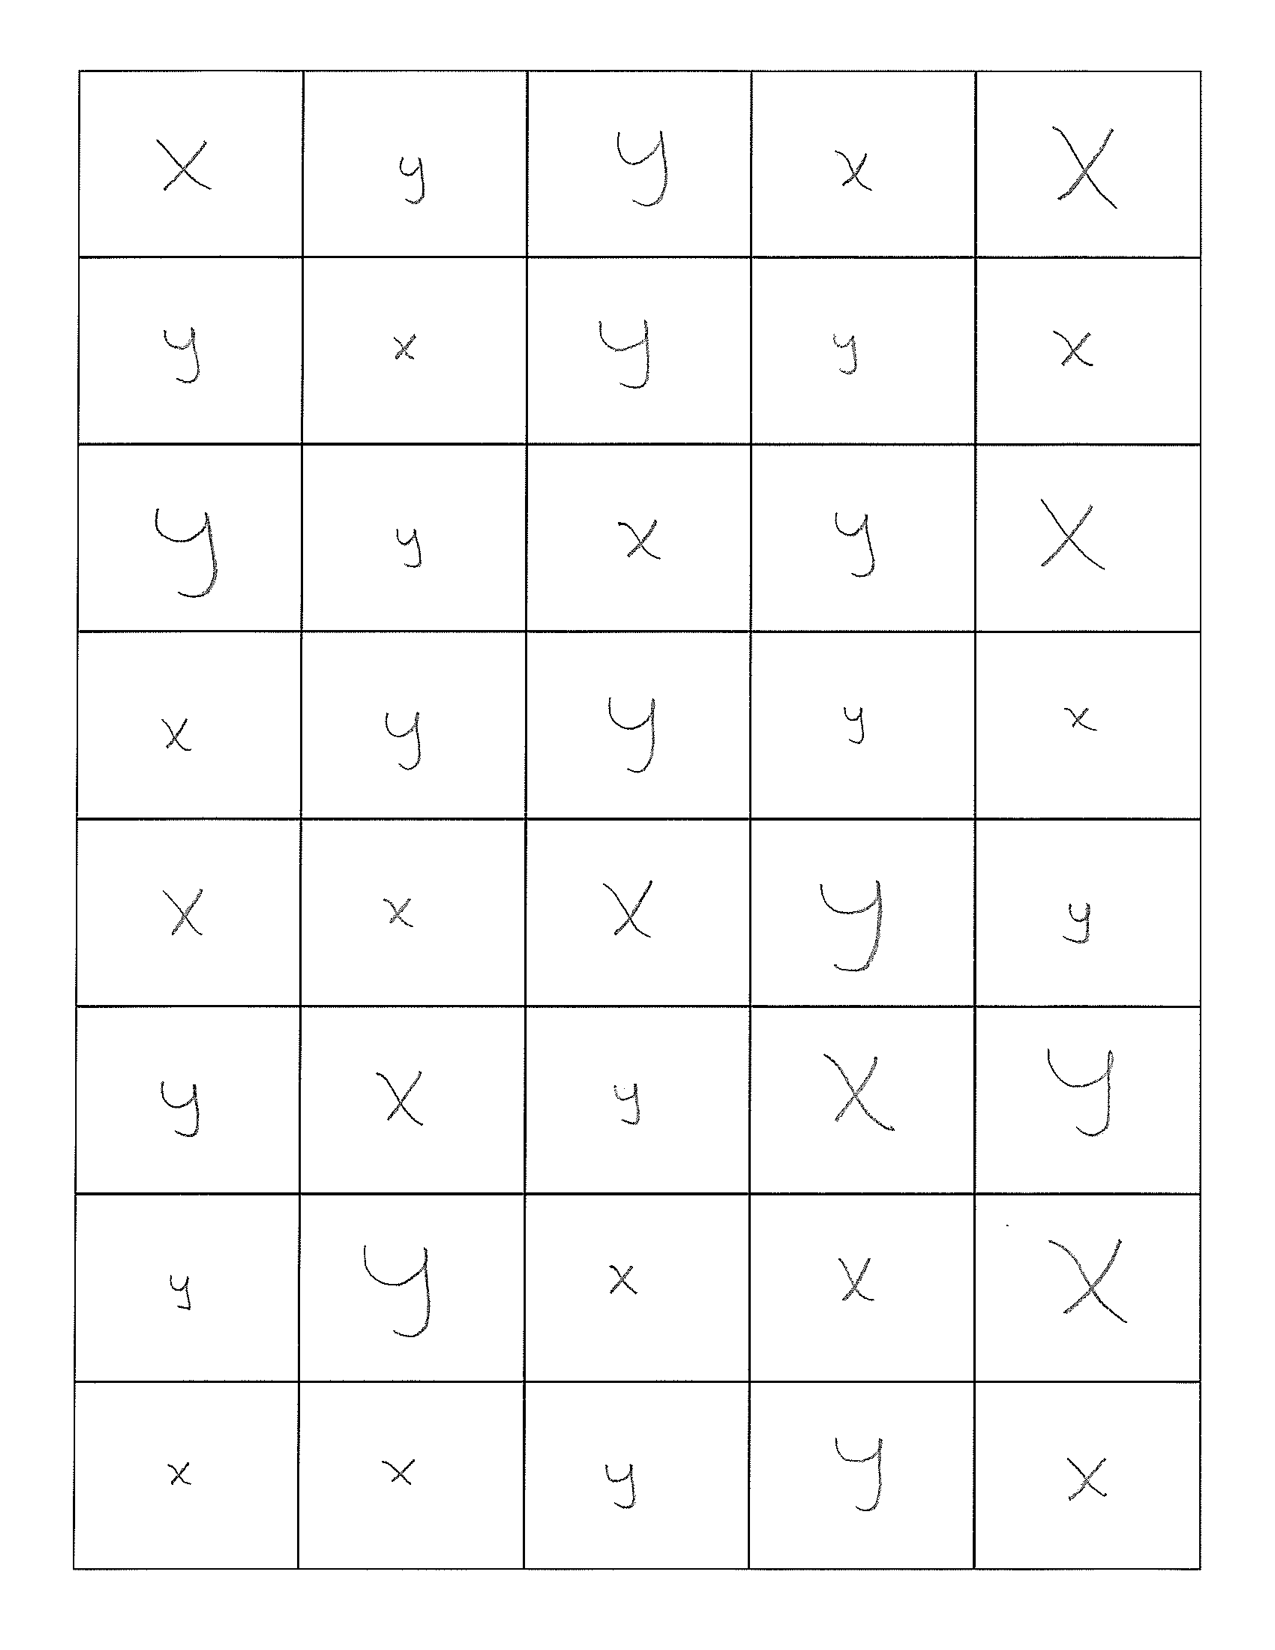 X y Y x X
y x Y y x
Y y x y X
x y Y y x
X x X Y y
y X y X Y
y Y x x X
x x y Y x